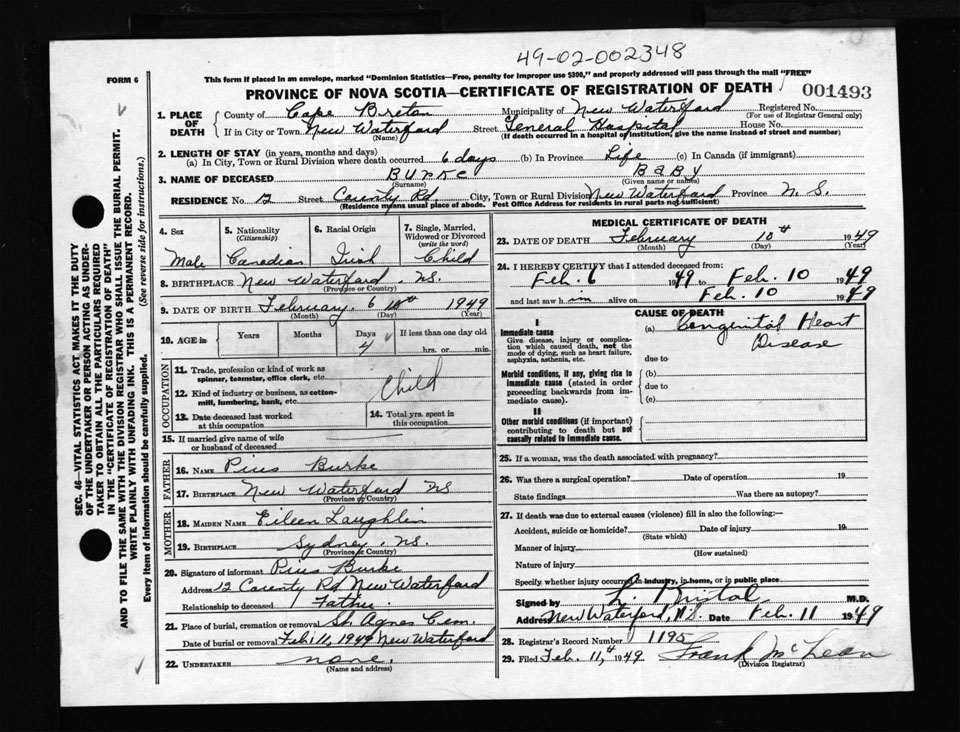 49-02-002348
FORM 6
This form if placed in an envelope, marked "Dominion Statistics—Free, penalty for improper use $300," and properly addressed will pass through the mail "FREE"
PROVINCE OF NOVA SCOTIA—CERTIFICATE OF REGISTRATION OF DEATH
001493
1. PLACE OF DEATH
County of Cape Breton Municipality of New Waterford Registered No.
(For use of Registrar General only)
If in City or Town New Waterford Street General Hospital House No.
(Name) (If death occurred in a hospital or institution, give the name instead of street and number)
2. LENGTH OF STAY (in years, months and days)
(a) In City, Town or Rural Division where death occurred 6 days (b) In Province Life (c) In Canada (if immigrant)
3. NAME OF DECEASED Burke Baby
(Surname) (Given name or names)
RESIDENCE No. 12 Street County Rd. City, Town or Rural Division New Waterford Province N.S.
(Residence means usual place of abode. Post Office Address for residents in rural parts not sufficient)
4. Sex
Male
5. Nationality
(Citizenship)
Canadian
6. Racial Origin
Irish
7. Single, Married, Widowed or Divorced
(write the word)
Child
8. BIRTHPLACE New Waterford NS.
(Province or Country)
9. DATE OF BIRTH February. 6 10th 1949
(Month) (Day) (Year)
10. AGE in
Years Months Days If less than one day old
4 hrs. or min.
OCCUPATION
11. Trade, profession or kind of work as
spinner, teamster, office clerk, etc.
12. Kind of industry or business, as cotton-
mill, lumbering, bank, etc.
Child
13. Date deceased last worked
at this occupation
14. Total yrs. spent in
this occupation
15. If married give name of wife
or husband of deceased
FATHER
16. NAME Pius Burke
17. BIRTHPLACE New Waterford NS
(Province or Country)
MOTHER
18. MAIDEN NAME Eileen Laughlin
19. BIRTHPLACE Sydney, NS.
(Province or Country)
20. Signature of informant Pius Burke
Address 12 County Rd New Waterford
Relationship to deceased Father
21. Place of burial, cremation or removal St. Agnes Cem.
Date of burial or removal Feb. 11, 1949 New Waterford
22. UNDERTAKER none.
(Name and address)
MEDICAL CERTIFICATE OF DEATH
23. DATE OF DEATH February 10th 1949
(Month) (Day) (Year)
24. I HEREBY CERTIFY that I attended deceased from:
Feb. 6 1949 to Feb. 10 1949
and last saw him alive on Feb. 10 1949
CAUSE OF DEATH
I
Immediate cause
Give disease, injury or complica-
tion which caused death, not the
mode of dying, such as heart failure,
asphyxia, asthenia, etc.
(a) Congenital Heart
Disease
due to
Morbid conditions, if any, giving rise to
immediate cause (stated in order
proceeding backwards from im-
mediate cause).
(b)
due to
(c)
II
Other morbid conditions (if important)
contributing to death but not
causally related to immediate cause.
25. If a woman, was the death associated with pregnancy?
26. Was there a surgical operation? Date of operation 19
State findings Was there an autopsy?
27. If death was due to external causes (violence) fill in also the following:—
Accident, suicide or homicide? Date of injury 19
(State which)
Manner of injury
(How sustained)
Nature of injury
Specify whether injury occurred in industry, in home, or in public place
Signed by M.D.
Address New Waterford, N.S. Date Feb. 11 1949
28. Registrar's Record Number 1195
29. Filed Feb. 11th 1949 Frank McLean
(Division Registrar)
SEC. 46—VITAL STATISTICS ACT MAKES IT THE DUTY
OF THE UNDERTAKER OR PERSON ACTING AS UNDER-
TAKER TO OBTAIN ALL THE PARTICULARS REQUIRED
IN THE "CERTIFICATE OF REGISTRATION OF DEATH"
AND TO FILE THE SAME WITH THE DIVISION REGISTRAR WHO SHALL ISSUE THE BURIAL PERMIT.
WRITE PLAINLY WITH UNFADING INK. THIS IS A PERMANENT RECORD.
Every item of information should be carefully supplied. (See reverse side for instructions.)